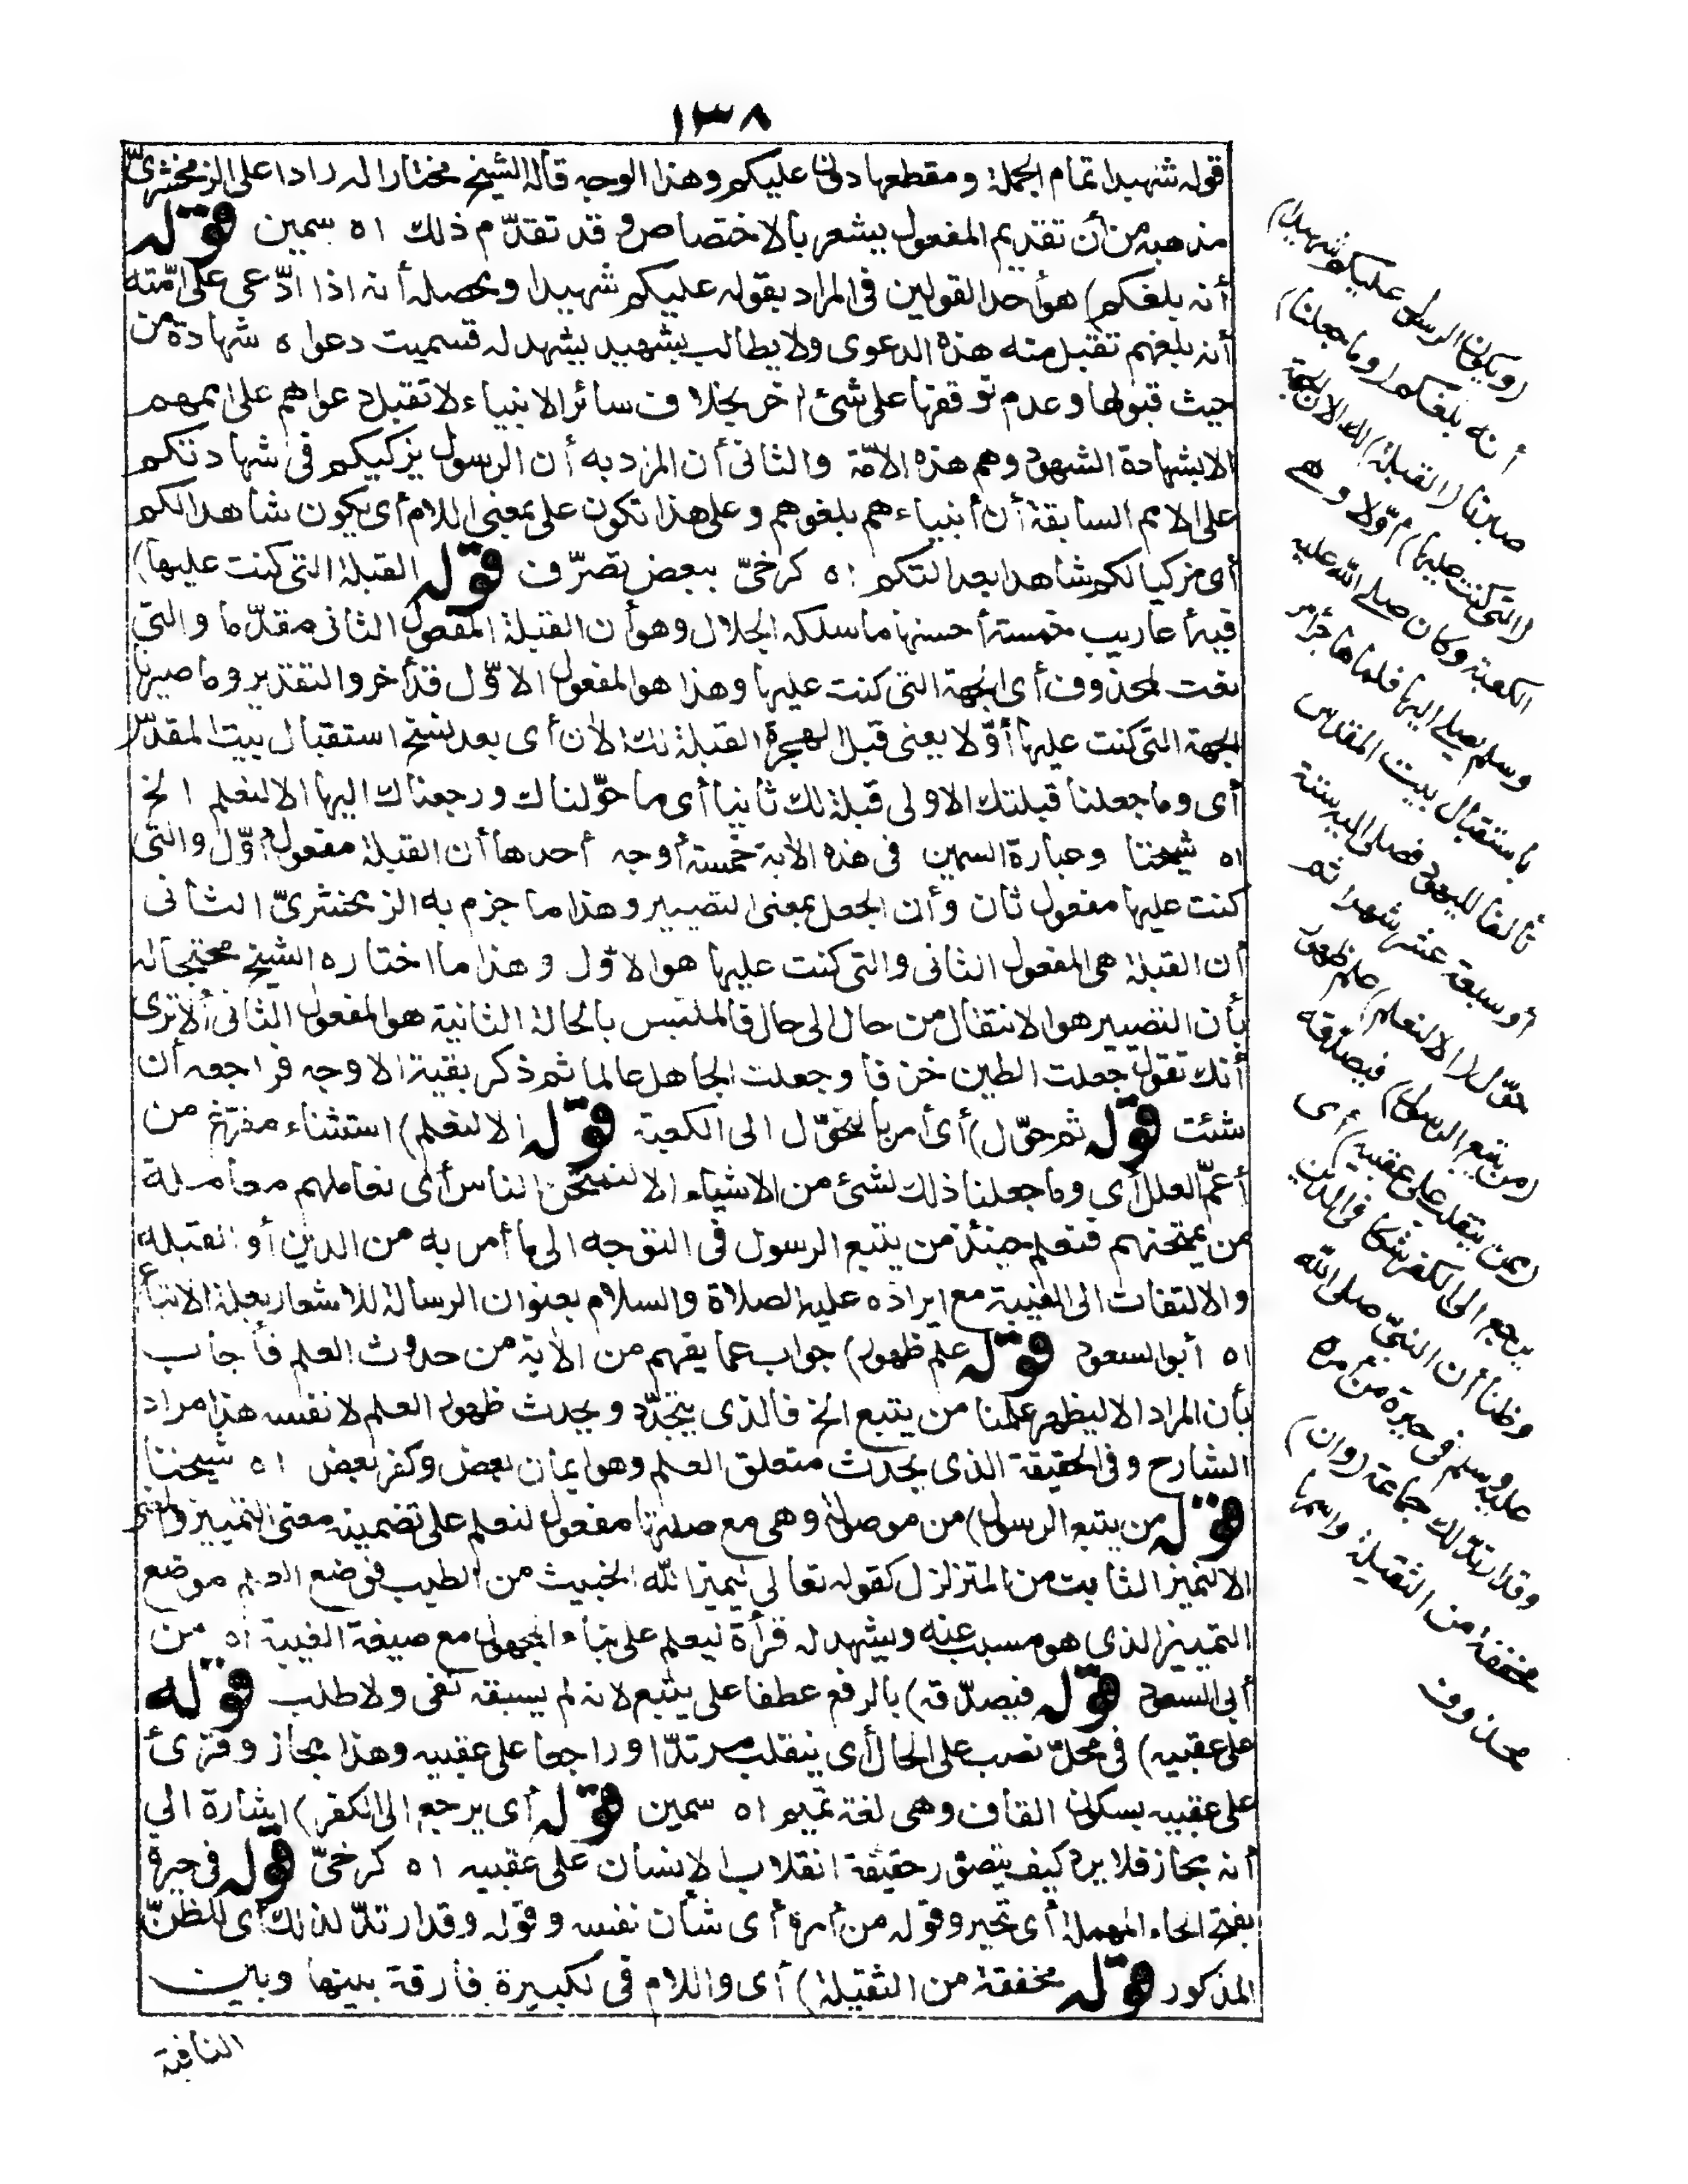 ١٣٨
قوله شهيدا تمام الجملة ومقطعها دون عليكم وهذا الوجه قاله الشيخ مختارا له رادا على الزمخشريّ
مذهبه من أن تقديم المفعول يشعر بالاختصاص وقد تقدّم ذلك اه سمين قوله
أنه بلغكم) هو أحد القولين فى المراد بقوله عليكم شهيدا ومحصله أنه اذا ادّعى على امّته
أنه بلغهم تقبل منه هذه الدعوى ولا يطالب بشهيد يشهد له فسميت دعواه شهادة من
حيث قبولها وعدم توقفها على شئ اخر بخلاف سائر الانبياء لا تقبل دعواهم على اممهم
الا بشهادة الشهود وهم هذه الامّة والثانى أن المراد به أن الرسول يزكيكم فى شهادتكم
على الامم السابقة أن أنبياءهم بلغوهم وعلى هذا تكون على بمعنى اللام أى يكون شاهدا لكم
أى مزكيا لكم شاهدا بعدالتكم اه كرخىّ ببعض تصرّف قوله القبلة التى كنت عليها)
فيه أعاريب خمسة أحسنها ما سلكه الجلال وهو أن القبلة المفعول الثانى مقدّما والتى
نعت لمحذوف أى الجهة التى كنت عليها وهذا هو المفعول الاوّل قد أخر والتقدير وما صيرنا
الجهة التى كنت عليها أوّلا يعنى قبل الهجرة القبلة لك الان أى بعد نسخ استقبال بيت المقدس
أى وما جعلنا قبلتك الاولى قبلة لك ثانيا أى ما حوّلناك ورجعناك اليها الا لنعلم الخ
اه شيخنا وعبارة السمين فى هذه الاية خمسة أوجه أحدها أن القبلة مفعول أوّل والتى
كنت عليها مفعول ثان وأن الجعل بمعنى التصيير وهذا ما جزم به الزمخشرىّ الثانى
أن القبلة هى المفعول الثانى والتى كنت عليها هو الاوّل وهذا ما اختاره الشيخ محتجا له
بأن التصيير هو الانتقال من حال الى حال فالملتبس بالحالة الثانية هو المفعول الثانى ألا ترى
أنك تقول جعلت الطين خزفا وجعلت الجاهل عالما ثم ذكر بقية الاوجه فراجعه أن
شئت قوله ثم حوّل) أى أمر بالتحوّل الى الكعبة قوله الا لنعلم) استثناء مفرّغ من
أعمّ العلل أى وما جعلنا ذلك لشئ من الاشياء الا لنمتحن الناس أى نعاملهم معاملة
من يمتحنهم فنعلم حينئذ من يتبع الرسول فى التوجه الى ما أمر به من الدين أو القبلة
والالتفات الى الغيبة مع ايراده عليه الصلاة والسلام بعنوان الرسالة للاشعار بعلة الاتباع
اه أبو السعود قوله علم ظهور) جواب عما يفهم من الاية من حدوث العلم فأجاب
بأن المراد الا ليظهر علمنا من يتبع الخ فالذى يتجدّد ويحدث ظهور العلم لا نفسه هذا مراد
الشارح وفى الحقيقة الذى يحدث متعلق العلم وهو ايمان بعض وكفر بعض اه شيخنا
قوله من يتبع الرسول) من موصولة وهى مع صلتها مفعول لنعلم على تضمينه معنى التمييز والمعنى
الا لنميز الثابت من المتزلزل كقوله تعالى ليميز الله الخبيث من الطيب فوضع العلم موضع
التمييز الذى هو مسبب عنه ويشهد له قرأة ليعلم على بناء المجهول مع صيغة الغيبة اه من
أبى السعود قوله فيصدّقه) بالرفع عطفا على يتبع لانه لم يسبقه نفى ولا طلب قوله
على عقبيه) فى محلّ نصب على الحال أى ينقلب مرتدّا وراجعا على عقبيه وهذا مجاز وقرئ
على عقبيه بسكون القاف وهى لغة تميم اه سمين قوله أى يرجع الى الكفر) اشارة الى
أنه مجاز فلا يرد كيف يتصوّر حقيقة انقلاب الانسان على عقبيه اه كرخىّ قوله فى حيرة
بفتح الحاء المهملة أى تحير وقوله من أمره أى شأن نفسه وقوله وقد ارتدّ لذلك أى للظنّ
المذكور قوله مخففة من الثقيلة) أى واللام فى لكبيرة فارقة بينها وبين
النافية
(ويكون الرسول عليكم شهيدا)
أنه بلغكم (وما جعلنا)
صيرنا (القبلة) لك الان الجهة
(التى كنت عليها) أوّلا وهى
الكعبة وكان صلى الله عليه
وسلم يصلى اليها فلما هاجر أمر
باستقبال بيت المقدس
تألفا لليهود فصلى اليه ستة
أو سبعة عشر شهرا ثم
حوّل (الا لنعلم) علم ظهور
(من يتبع الرسول) فيصدّقه
(ممن ينقلب على عقبيه) أى
يرجع الى الكفر شكا فى الدين
وظنا أن النبىّ صلى الله
عليه وسلم فى حيرة من أمره
وقد ارتدّ لذلك جماعة (وان)
مخففة من الثقيلة واسمها
محذوف